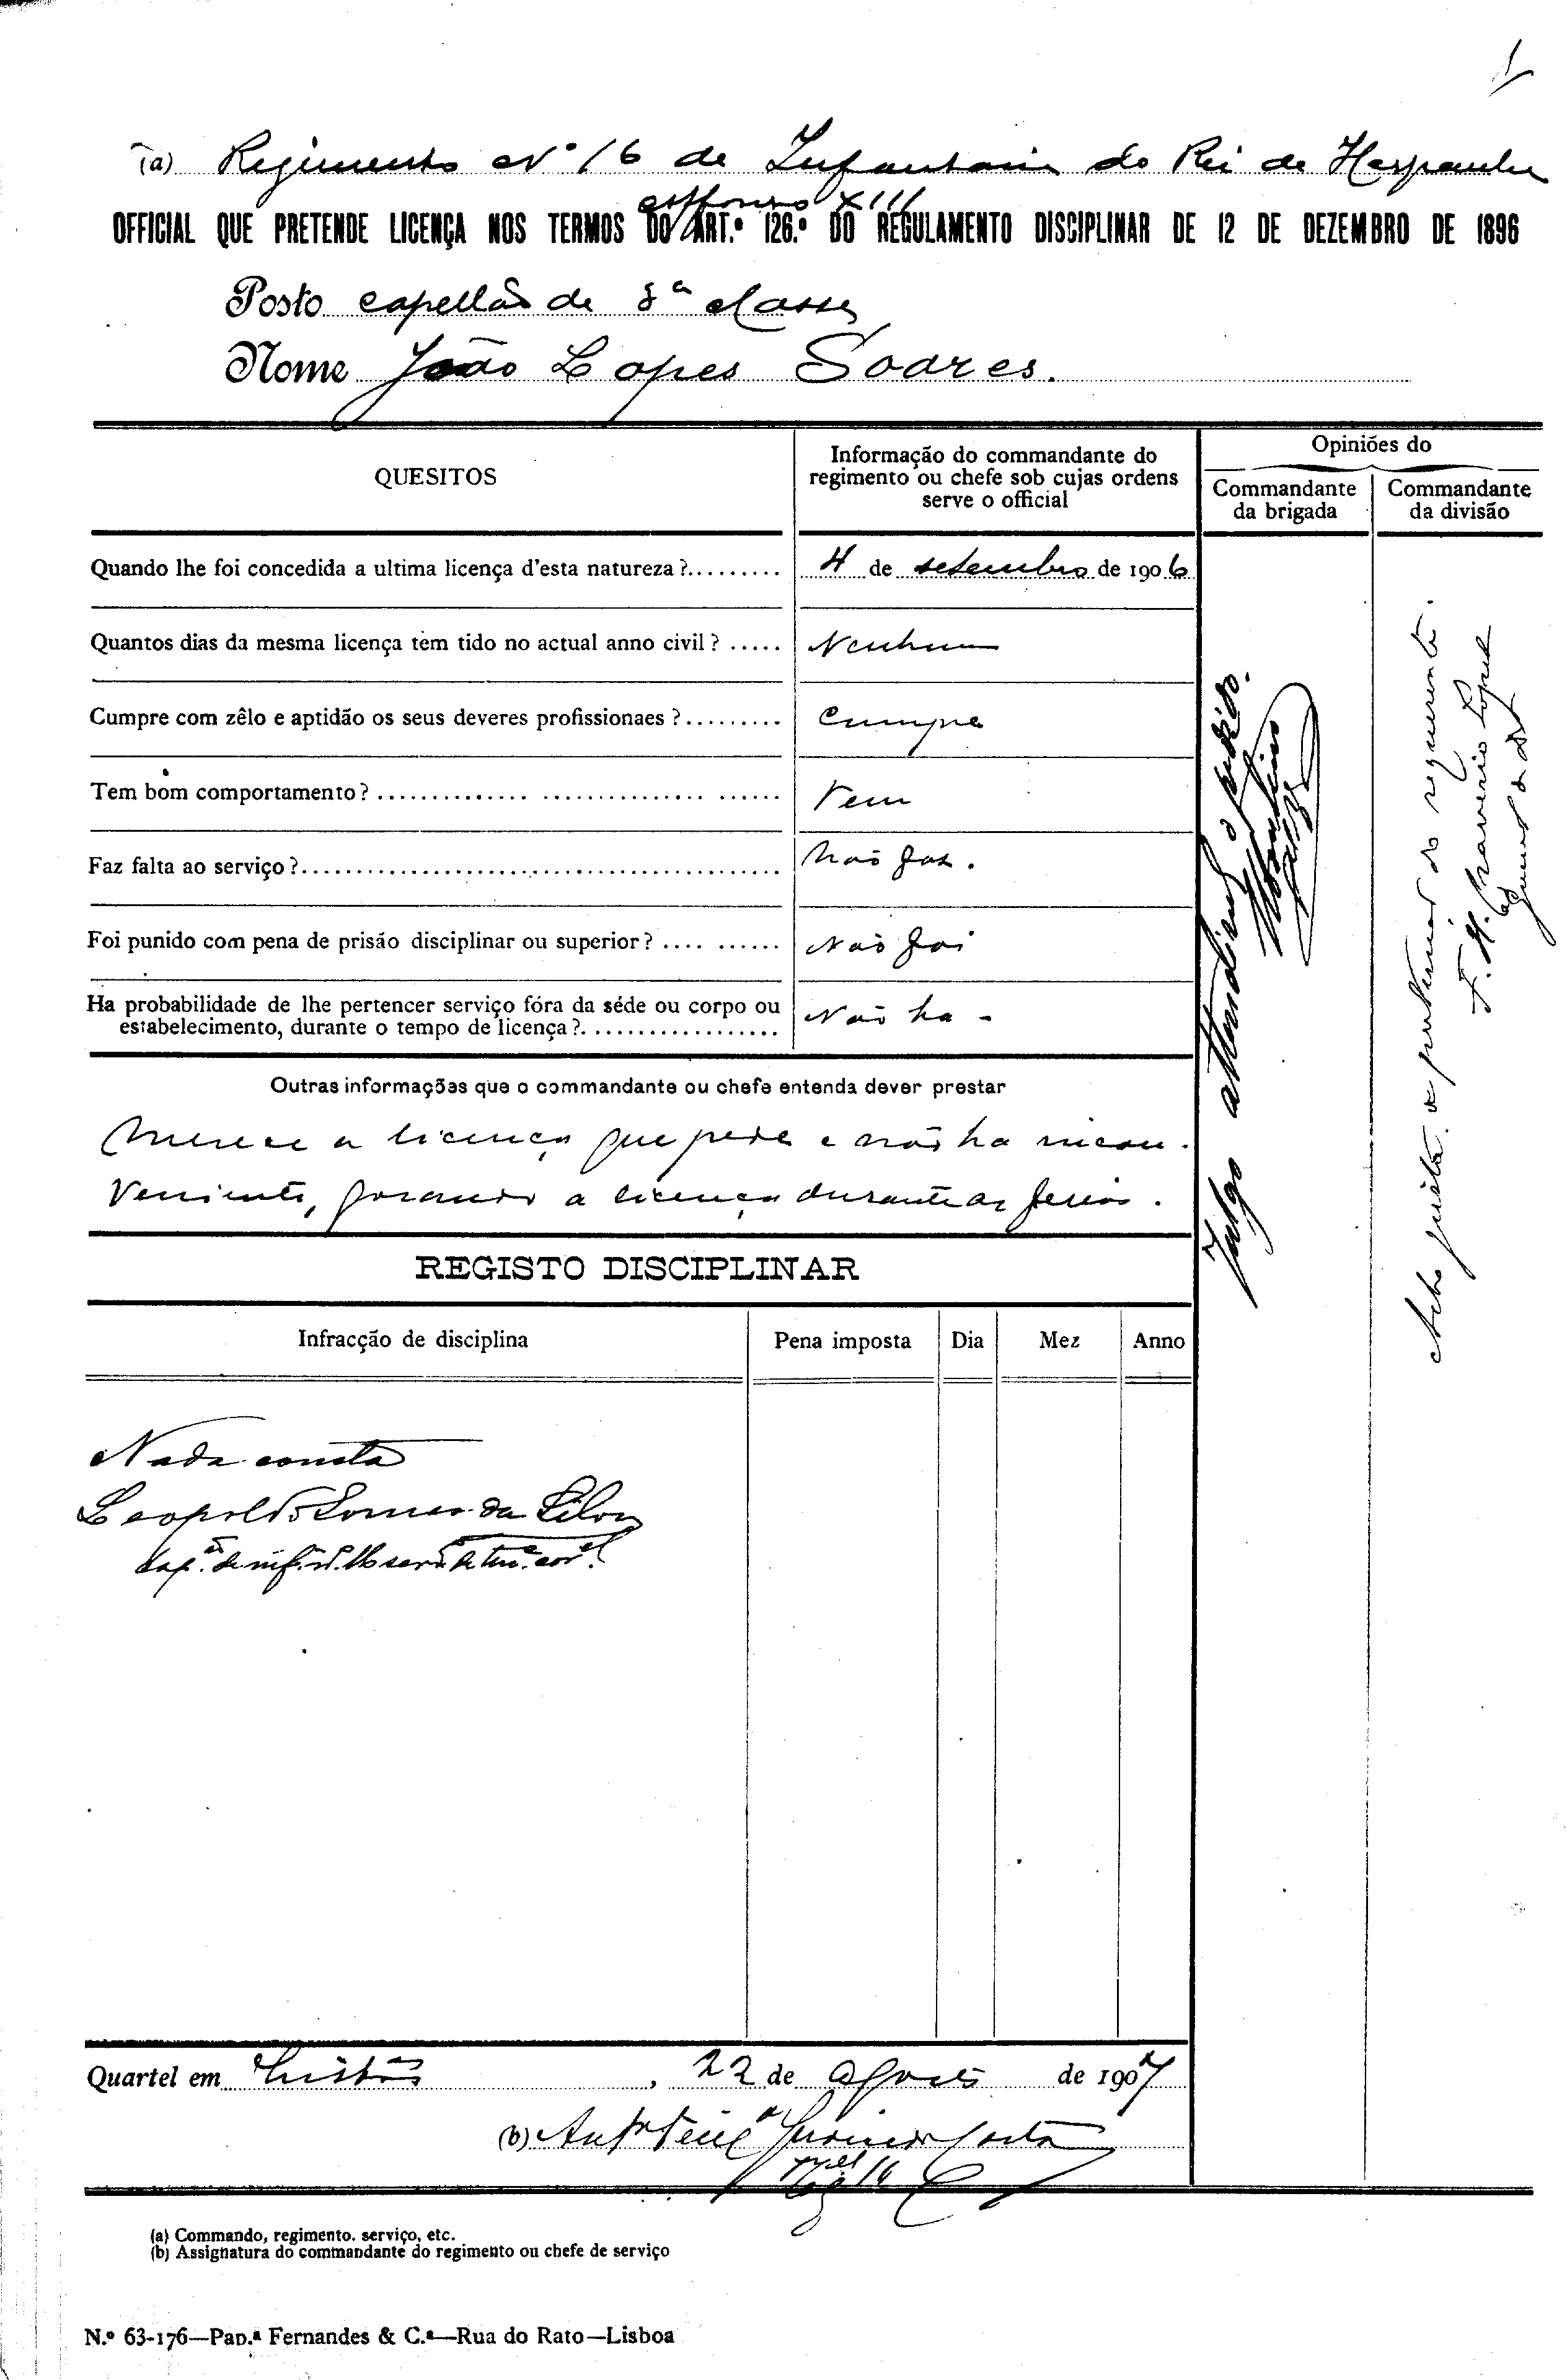 (a) Regimento Nº 16 de Infantaria do Rei de Hespanha
Affonso XIII
OFFICIAL QUE PRETENDE LICENÇA NOS TERMOS DO ART.º 126.º DO REGULAMENTO DISCIPLINAR DE 12 DE DEZEMBRO DE 1896
Posto capellão de 3ª classe
Nome João Lopes Soares.
QUESITOS
Informação do commandante do
regimento ou chefe sob cujas ordens
serve o official
Opiniões do
Commandante
da brigada
Commandante
da divisão
Quando lhe foi concedida a ultima licença d'esta natureza?......... 4 de setembro de 1906
Quantos dias da mesma licença tem tido no actual anno civil? ..... Nenhum
Cumpre com zêlo e aptidão os seus deveres profissionaes?......... Cumpre
Tem bom comportamento? ............. ............... ...... Tem
Faz falta ao serviço?............................................ Não faz.
Foi punido com pena de prisão disciplinar ou superior? .... ...... Não foi
Ha probabilidade de lhe pertencer serviço fóra da séde ou corpo ou
estabelecimento, durante o tempo de licença?. ................. Não ha -
Outras informações que o commandante ou chefe entenda dever prestar
Merece a licença que pede e não ha incon-
veniente, gosando a licença durante as ferias.
REGISTO DISCIPLINAR
Infracção de disciplina
Pena imposta
Dia
Mez
Anno
Nada consta
Leopoldo Gomes da Silva
Cap.ão de inf. nº. 16 ser de ten.e cor.el
Quartel em , 22 de Agosto de 1907
(b)
(a) Commando, regimento, serviço, etc.
(b) Assignatura do commandante do regimento ou chefe de serviço
N.º 63-176—Pap.ª Fernandes & C.ª—Rua do Rato—Lisboa
Julgo attendivel o pedido.
Acho justa a pretensão do requerente.